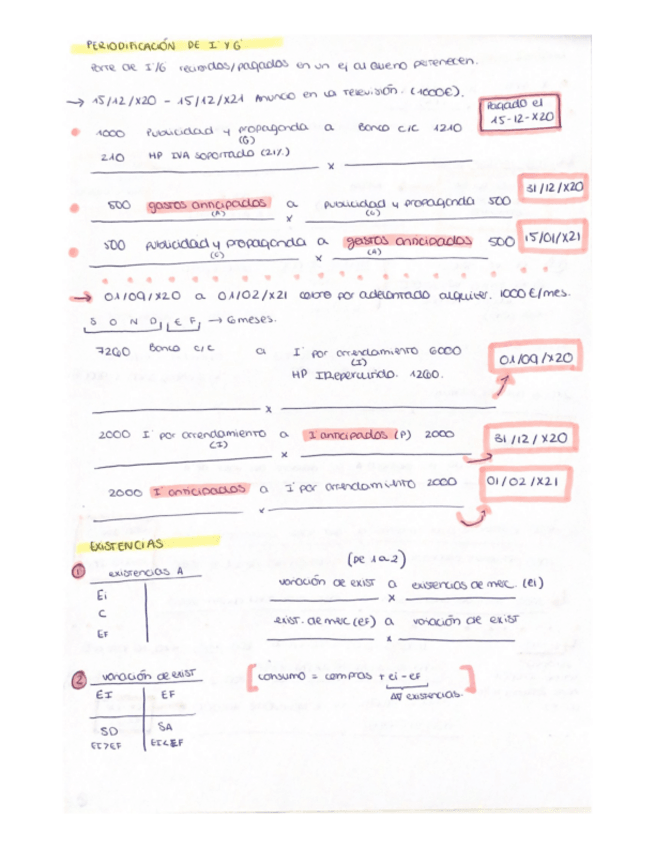 PERIODIFICACIÓN DE I Y G
Parte de I/G recibidos/pagados en un ej al que no pertenecen.
→ 15/12/X20 - 15/12/X21 Anuncio en la televisión. (1000€).
Pagado el
15-12-X20
1000 Publicidad y propaganda a Banco c/c 1210
(G)
210 HP IVA soportado (21%)
x
31/12/X20
500 gastos anticipados a publicidad y propaganda 500
(A) (G)
x
15/01/X21
500 publicidad y propaganda a gastos anticipados 500
(G) (A)
x
→ 01/09/X20 a 01/02/X21 cobro por adelantado alquiler. 1000€/mes.
S O N D E F → 6 meses.
7260 Banco c/c a I por arrendamiento 6000
(I)
HP IRepercutido. 1260.
01/09/X20
x
2000 I por arrendamiento a I anticipados (P) 2000
(I)
31/12/X20
x
2000 I anticipados a I por arrendamiento 2000
01/02/X21
x
EXISTENCIAS
(De 1 a 2)
1 existencias A
Ei
C
EF
variación de exist a existencias de merc. (ei)
x
exist. de merc (ef) a variación de exist
x
2 variación de exist
EI EF
SD SA
EI>EF EI<EF
[consumo = compras + ei - ef]
existencias.